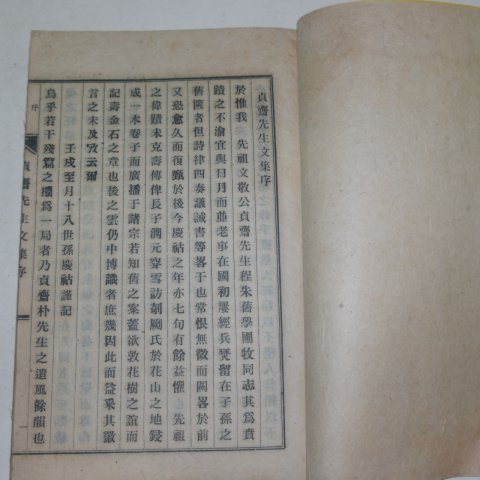 貞齋先生文集序
於惟我 先祖文敬公貞齋先生程朱舊學圃牧同志其爲貴
蹟之不渝宜與日月而並老事在國初屢經兵燹留在子孫之
舊篋者但詩律四奏議誠書等畧于也常恨無徵而闕畧於前
又恐愈久而復甄於後今慶祜之年亦七旬有餘益懼 先祖
之偉蹟未克壽傳俾長子潤元穿雪訪剞劂氏於花山之地鋟
成一本卷子而廣播于諸宗若知舊之案蓋欲敦花樹之誼而
記壽金石之章也後之雲仍中博識者庶幾因此而益采其徽
言之未及攷云爾
壬戌至月十八世孫慶祜謹記
烏乎若干殘篇之環爲一局者乃貞齋朴先生之遺風餘韻也
貞齋先生文集序
序